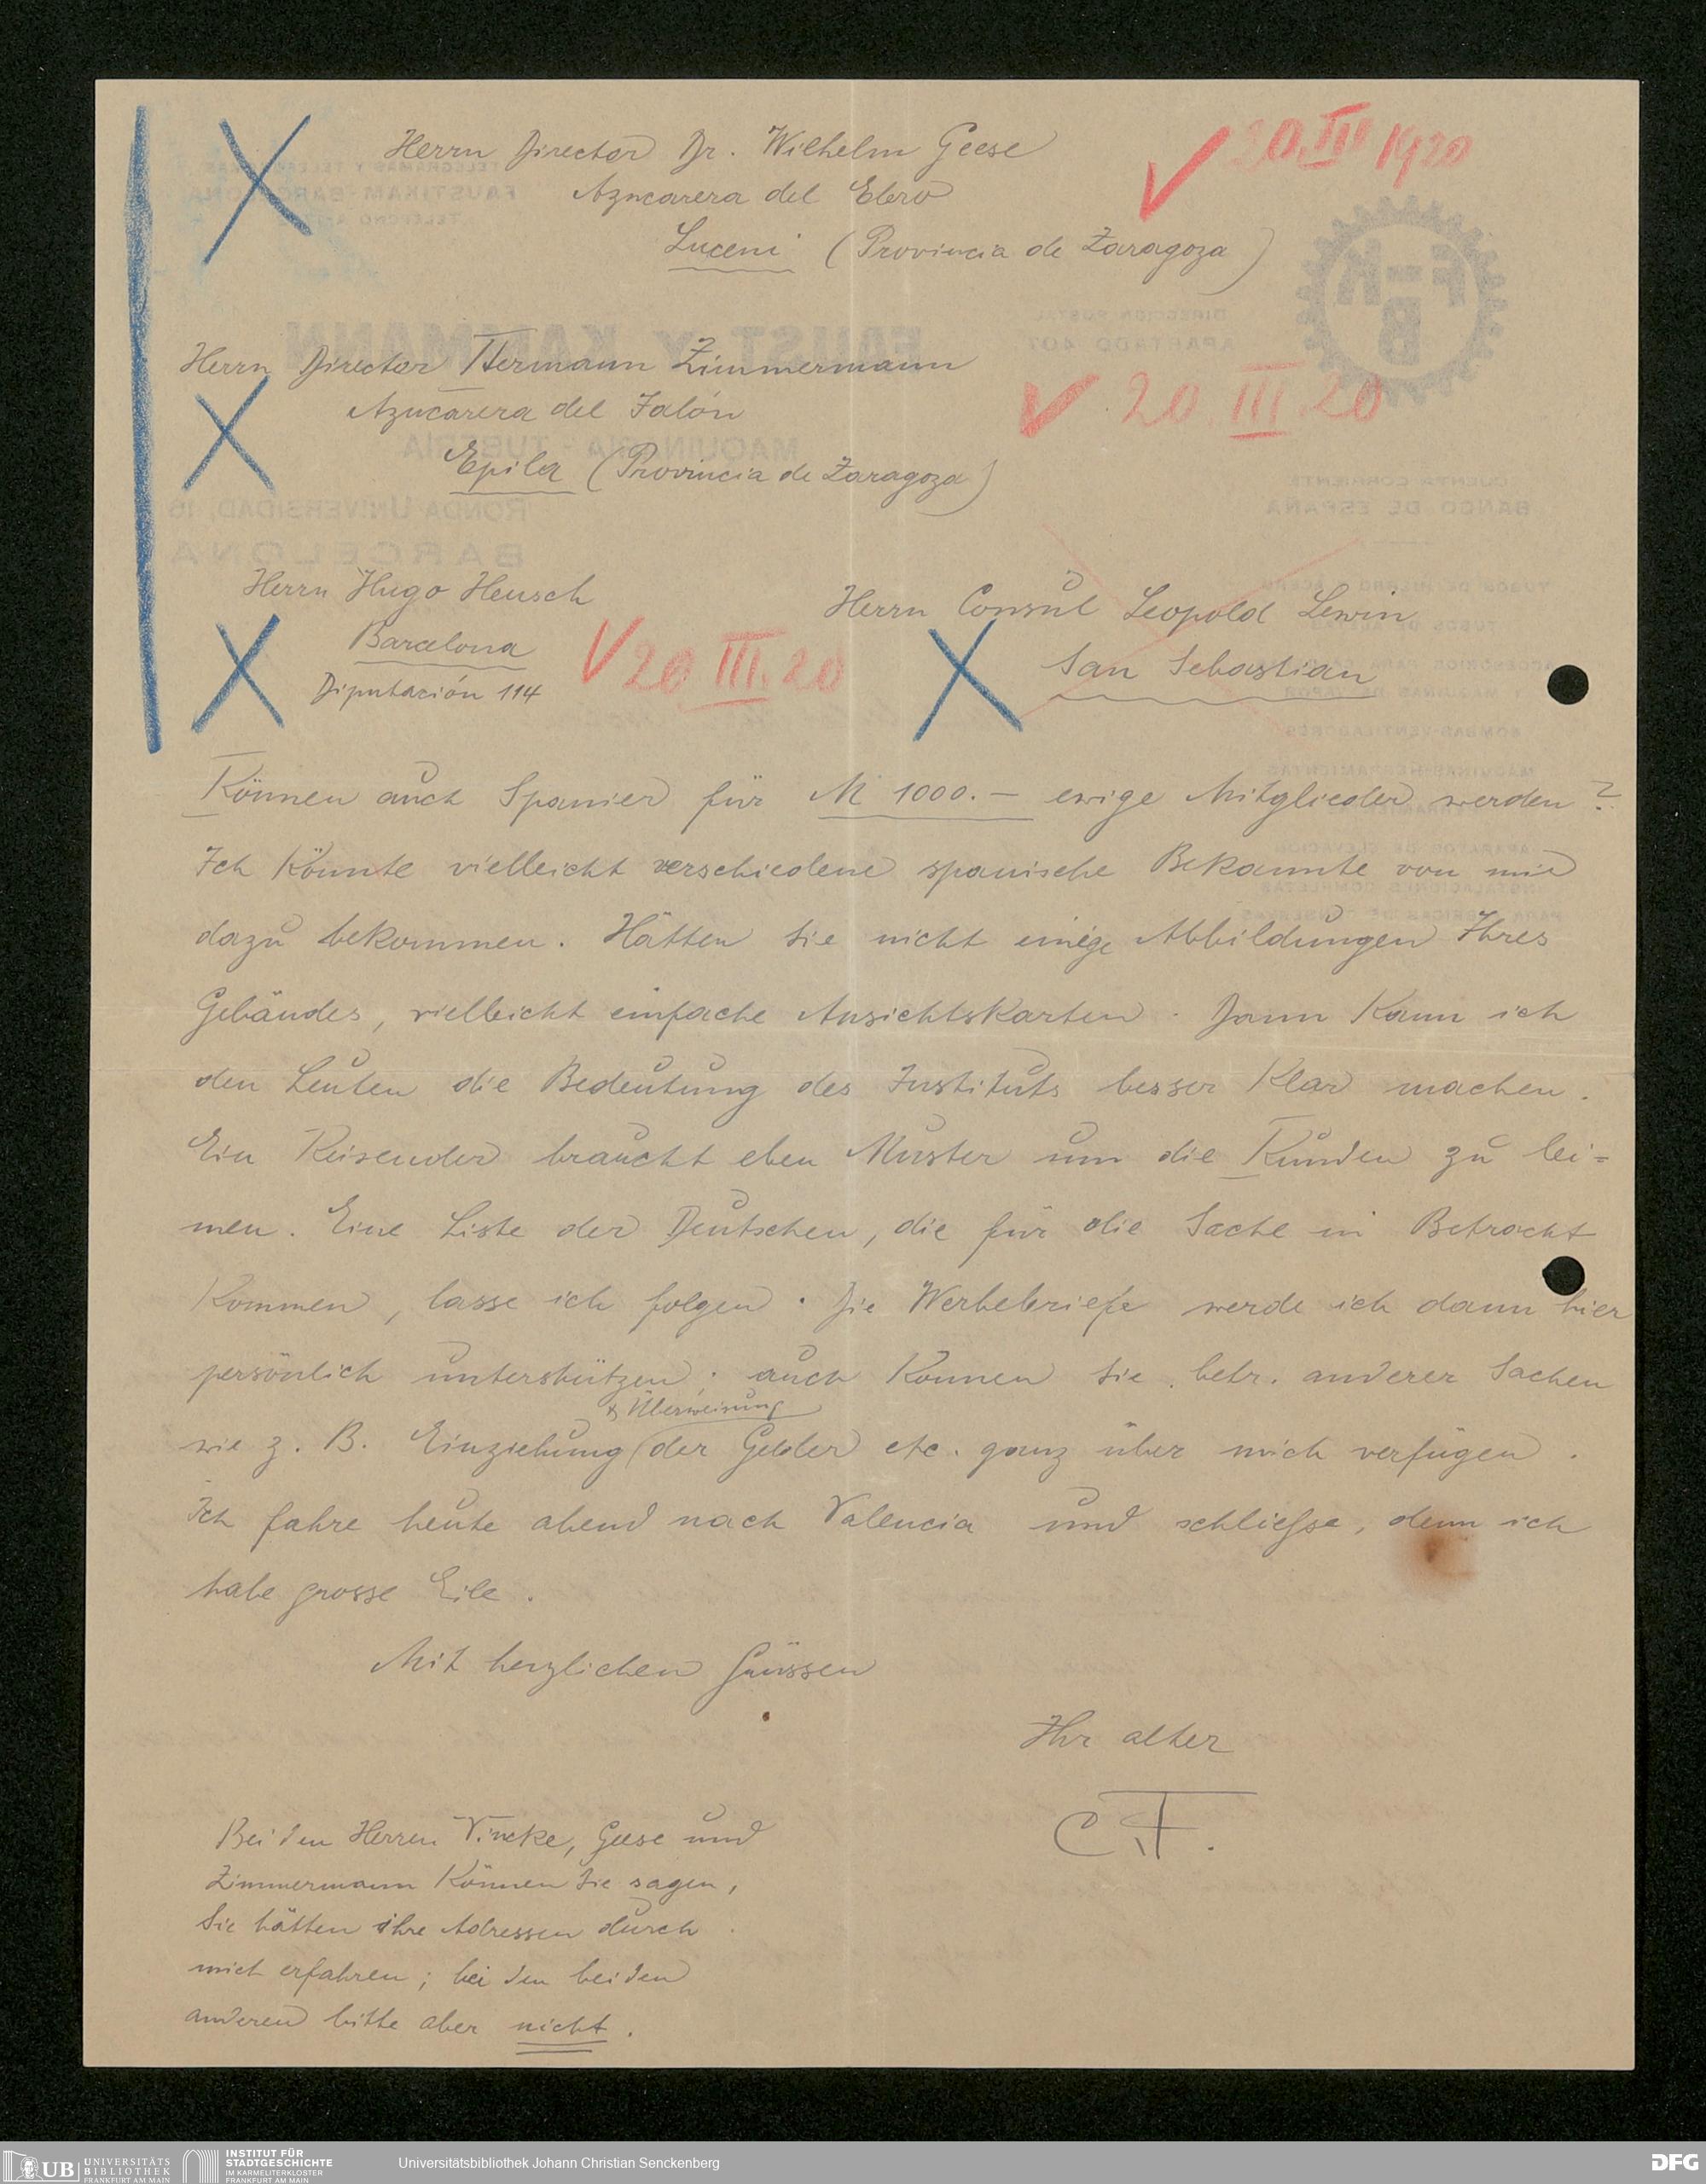 Herrn Director Dr. Wilhelm Geese
20.III 1920
Azucarera del Ebro
Luceni (Provincia de Zaragoza)
Herrn Director Hermann Zimmermann
20.III.20
Azucarera del Jalón
Epila (Provincia de Zaragoza)
Herrn Hugo Heusch
Barcelona
Diputación 114
20 III. 20
Herrn Consul Leopold Lewin
San Sebastian
Können auch Spanier für M 1000.- ewige Mitglieder werden?
Ich könnte vielleicht verschiedene spanische Bekannte von mir
dazu bekommen. Hätten Sie nicht einige Abbildungen Ihres
Gebäudes, vielleicht einfache Ansichtskarten. Dann kann ich
den Leuten die Bedeutung des Instituts besser klar machen.
Ein Reisender braucht eben Muster um die Kunden zu lei=
men. Eine Liste der Deutschen, die für die Sache in Betracht
kommen, lasse ich folgen. Die Werbebriefe werde ich dann hier
persönlich unterstützen; auch können Sie betr. anderer Sachen
& Überweisung
wie z. B. Einziehung der Gelder etc. ganz über mich verfügen.
Ich fahre heute abend nach Valencia und schliesse, denn ich
habe grosse Eile.
Mit herzlichen Grüssen
Ihr alter
CF.
Bei den Herren Vincke, Geese und
Zimmermann können Sie sagen,
Sie hätten ihre Adressen durch
mich erfahren; bei den beiden
anderen bitte aber nicht.
UB UNIVERSITÄTS BIBLIOTHEK FRANKFURT AM MAIN
INSTITUT FÜR STADTGESCHICHTE IM KARMELITERKLOSTER FRANKFURT AM MAIN
Universitätsbibliothek Johann Christian Senckenberg
DFG